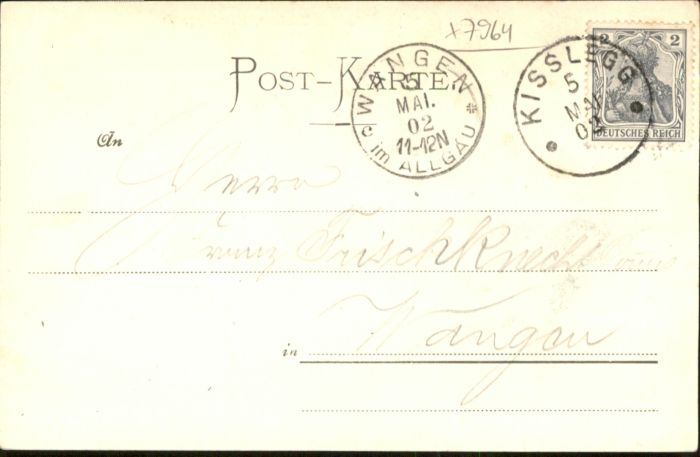 x7964
POST-KARTE.
WANGEN
5
MAI.
02
11-12N
c im ALLGÄU
KISSLEGG
5
MAI
02
2 2
DEUTSCHES REICH
An
Herrn
Franz Frischknecht
in Wangen